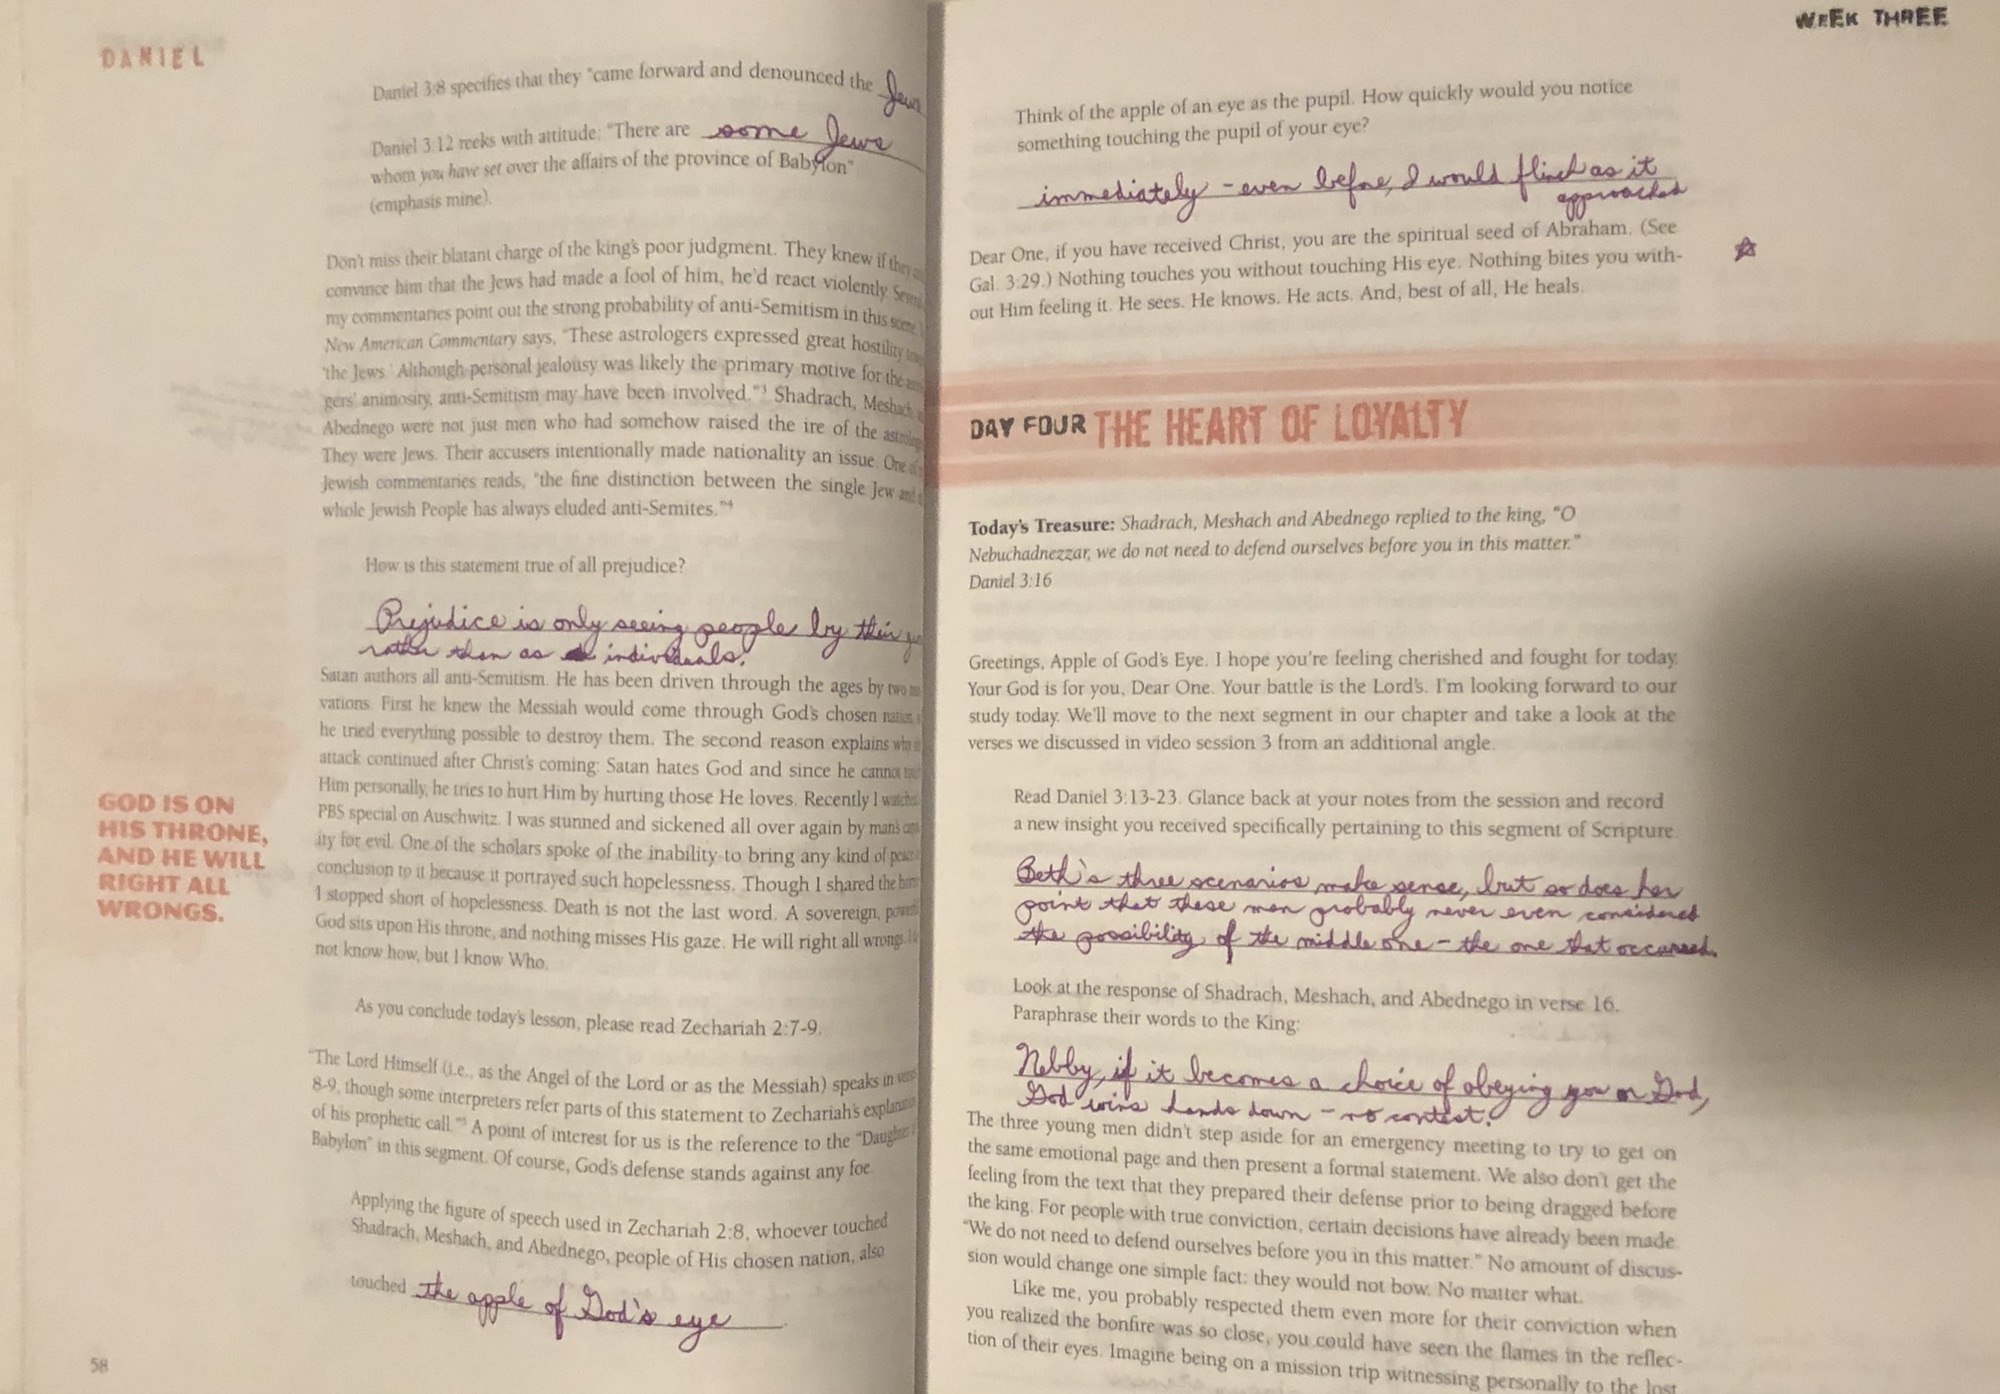 DANIEL
Daniel 3:8 specifies that they "came forward and denounced the Jews
Daniel 3:12 reeks with attitude: "There are some Jews
whom you have set over the affairs of the province of Babylon"
(emphasis mine).
Don't miss their blatant charge of the king's poor judgment. They knew if they
convince him that the Jews had made a fool of him, he'd react violently.
my commentaries point out the strong probability of anti-Semitism in this scene.
New American Commentary says, "These astrologers expressed great hostility
'the Jews.' Although personal jealousy was likely the primary motive for the
gers' animosity, anti-Semitism may have been involved."3 Shadrach, Meshach,
Abednego were not just men who had somehow raised the ire of the
They were Jews. Their accusers intentionally made nationality an issue. One of
Jewish commentaries reads, "the fine distinction between the single Jew and
whole Jewish People has always eluded anti-Semites."4
How is this statement true of all prejudice?
Prejudice is only seeing people by their
rather than as individuals.
Satan authors all anti-Semitism. He has been driven through the ages by two
vations. First he knew the Messiah would come through God's chosen nation,
he tried everything possible to destroy them. The second reason explains why
attack continued after Christ's coming: Satan hates God and since he cannot
Him personally, he tries to hurt Him by hurting those He loves. Recently I
PBS special on Auschwitz. I was stunned and sickened all over again by man's
ity for evil. One of the scholars spoke of the inability to bring any kind of
conclusion to it because it portrayed such hopelessness. Though I shared the
I stopped short of hopelessness. Death is not the last word. A sovereign,
God sits upon His throne, and nothing misses His gaze. He will right all wrongs.
not know how, but I know Who.
GOD IS ON
HIS THRONE,
AND HE WILL
RIGHT ALL
WRONGS.
As you conclude today's lesson, please read Zechariah 2:7-9.
"The Lord Himself (i.e., as the Angel of the Lord or as the Messiah) speaks in
8-9, though some interpreters refer parts of this statement to Zechariah's
of his prophetic call."5 A point of interest for us is the reference to the "Daughter
Babylon" in this segment. Of course, God's defense stands against any foe.
Applying the figure of speech used in Zechariah 2:8, whoever touched
Shadrach, Meshach, and Abednego, people of His chosen nation, also
touched the apple of God's eye
58
WEEK THREE
Think of the apple of an eye as the pupil. How quickly would you notice
something touching the pupil of your eye?
immediately - even before, I would flinch as it
approached
Dear One, if you have received Christ, you are the spiritual seed of Abraham. (See
Gal. 3:29.) Nothing touches you without touching His eye. Nothing bites you with-
out Him feeling it. He sees. He knows. He acts. And, best of all, He heals.
DAY FOUR THE HEART OF LOYALTY
Today's Treasure: Shadrach, Meshach and Abednego replied to the king, "O
Nebuchadnezzar, we do not need to defend ourselves before you in this matter."
Daniel 3:16
Greetings, Apple of God's Eye. I hope you're feeling cherished and fought for today.
Your God is for you, Dear One. Your battle is the Lord's. I'm looking forward to our
study today. We'll move to the next segment in our chapter and take a look at the
verses we discussed in video session 3 from an additional angle.
Read Daniel 3:13-23. Glance back at your notes from the session and record
a new insight you received specifically pertaining to this segment of Scripture.
Beth's three scenarios make sense, but so does her
point that these men probably never even considered
the possibility of the middle one - the one that occurred.
Look at the response of Shadrach, Meshach, and Abednego in verse 16.
Paraphrase their words to the King:
Nebby, if it becomes a choice of obeying you or God,
God wins hands down - no contest.
The three young men didn't step aside for an emergency meeting to try to get on
the same emotional page and then present a formal statement. We also don't get the
feeling from the text that they prepared their defense prior to being dragged before
the king. For people with true conviction, certain decisions have already been made.
"We do not need to defend ourselves before you in this matter." No amount of discus-
sion would change one simple fact: they would not bow. No matter what.
Like me, you probably respected them even more for their conviction when
you realized the bonfire was so close, you could have seen the flames in the reflec-
tion of their eyes. Imagine being on a mission trip witnessing personally to the lost